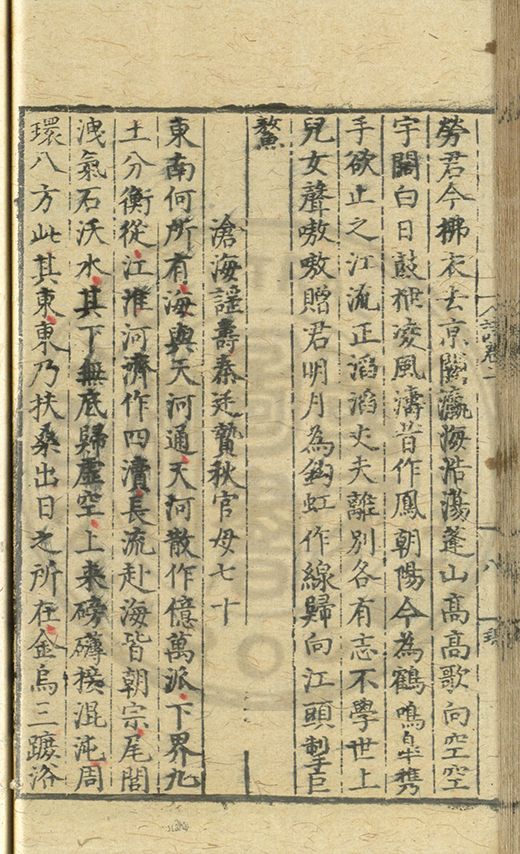 勞君今拂衣去京闕瀛海浩蕩蓬山高高歌向空空
宇闊白日鼓枻凌風濤昔作鳳朝陽今為鶴鳴皋攜
手欲止之江流正滔滔丈夫離別各有志不學世上
兒女聲嗷嗷贈君明月為鈎虹作線歸向江頭掣巨
鰲
滄海謠壽秦廷贄秋官母七十
東南何所有海與天河通天河散作億萬派下界九
土分衡從江淮河濟作四瀆長流赴海皆朝宗尾閭
洩氣石沃水其下無底歸虛空上來磅礴接混沌周
環八方此其東東乃扶桑出日之所在金烏三蹠洛
八